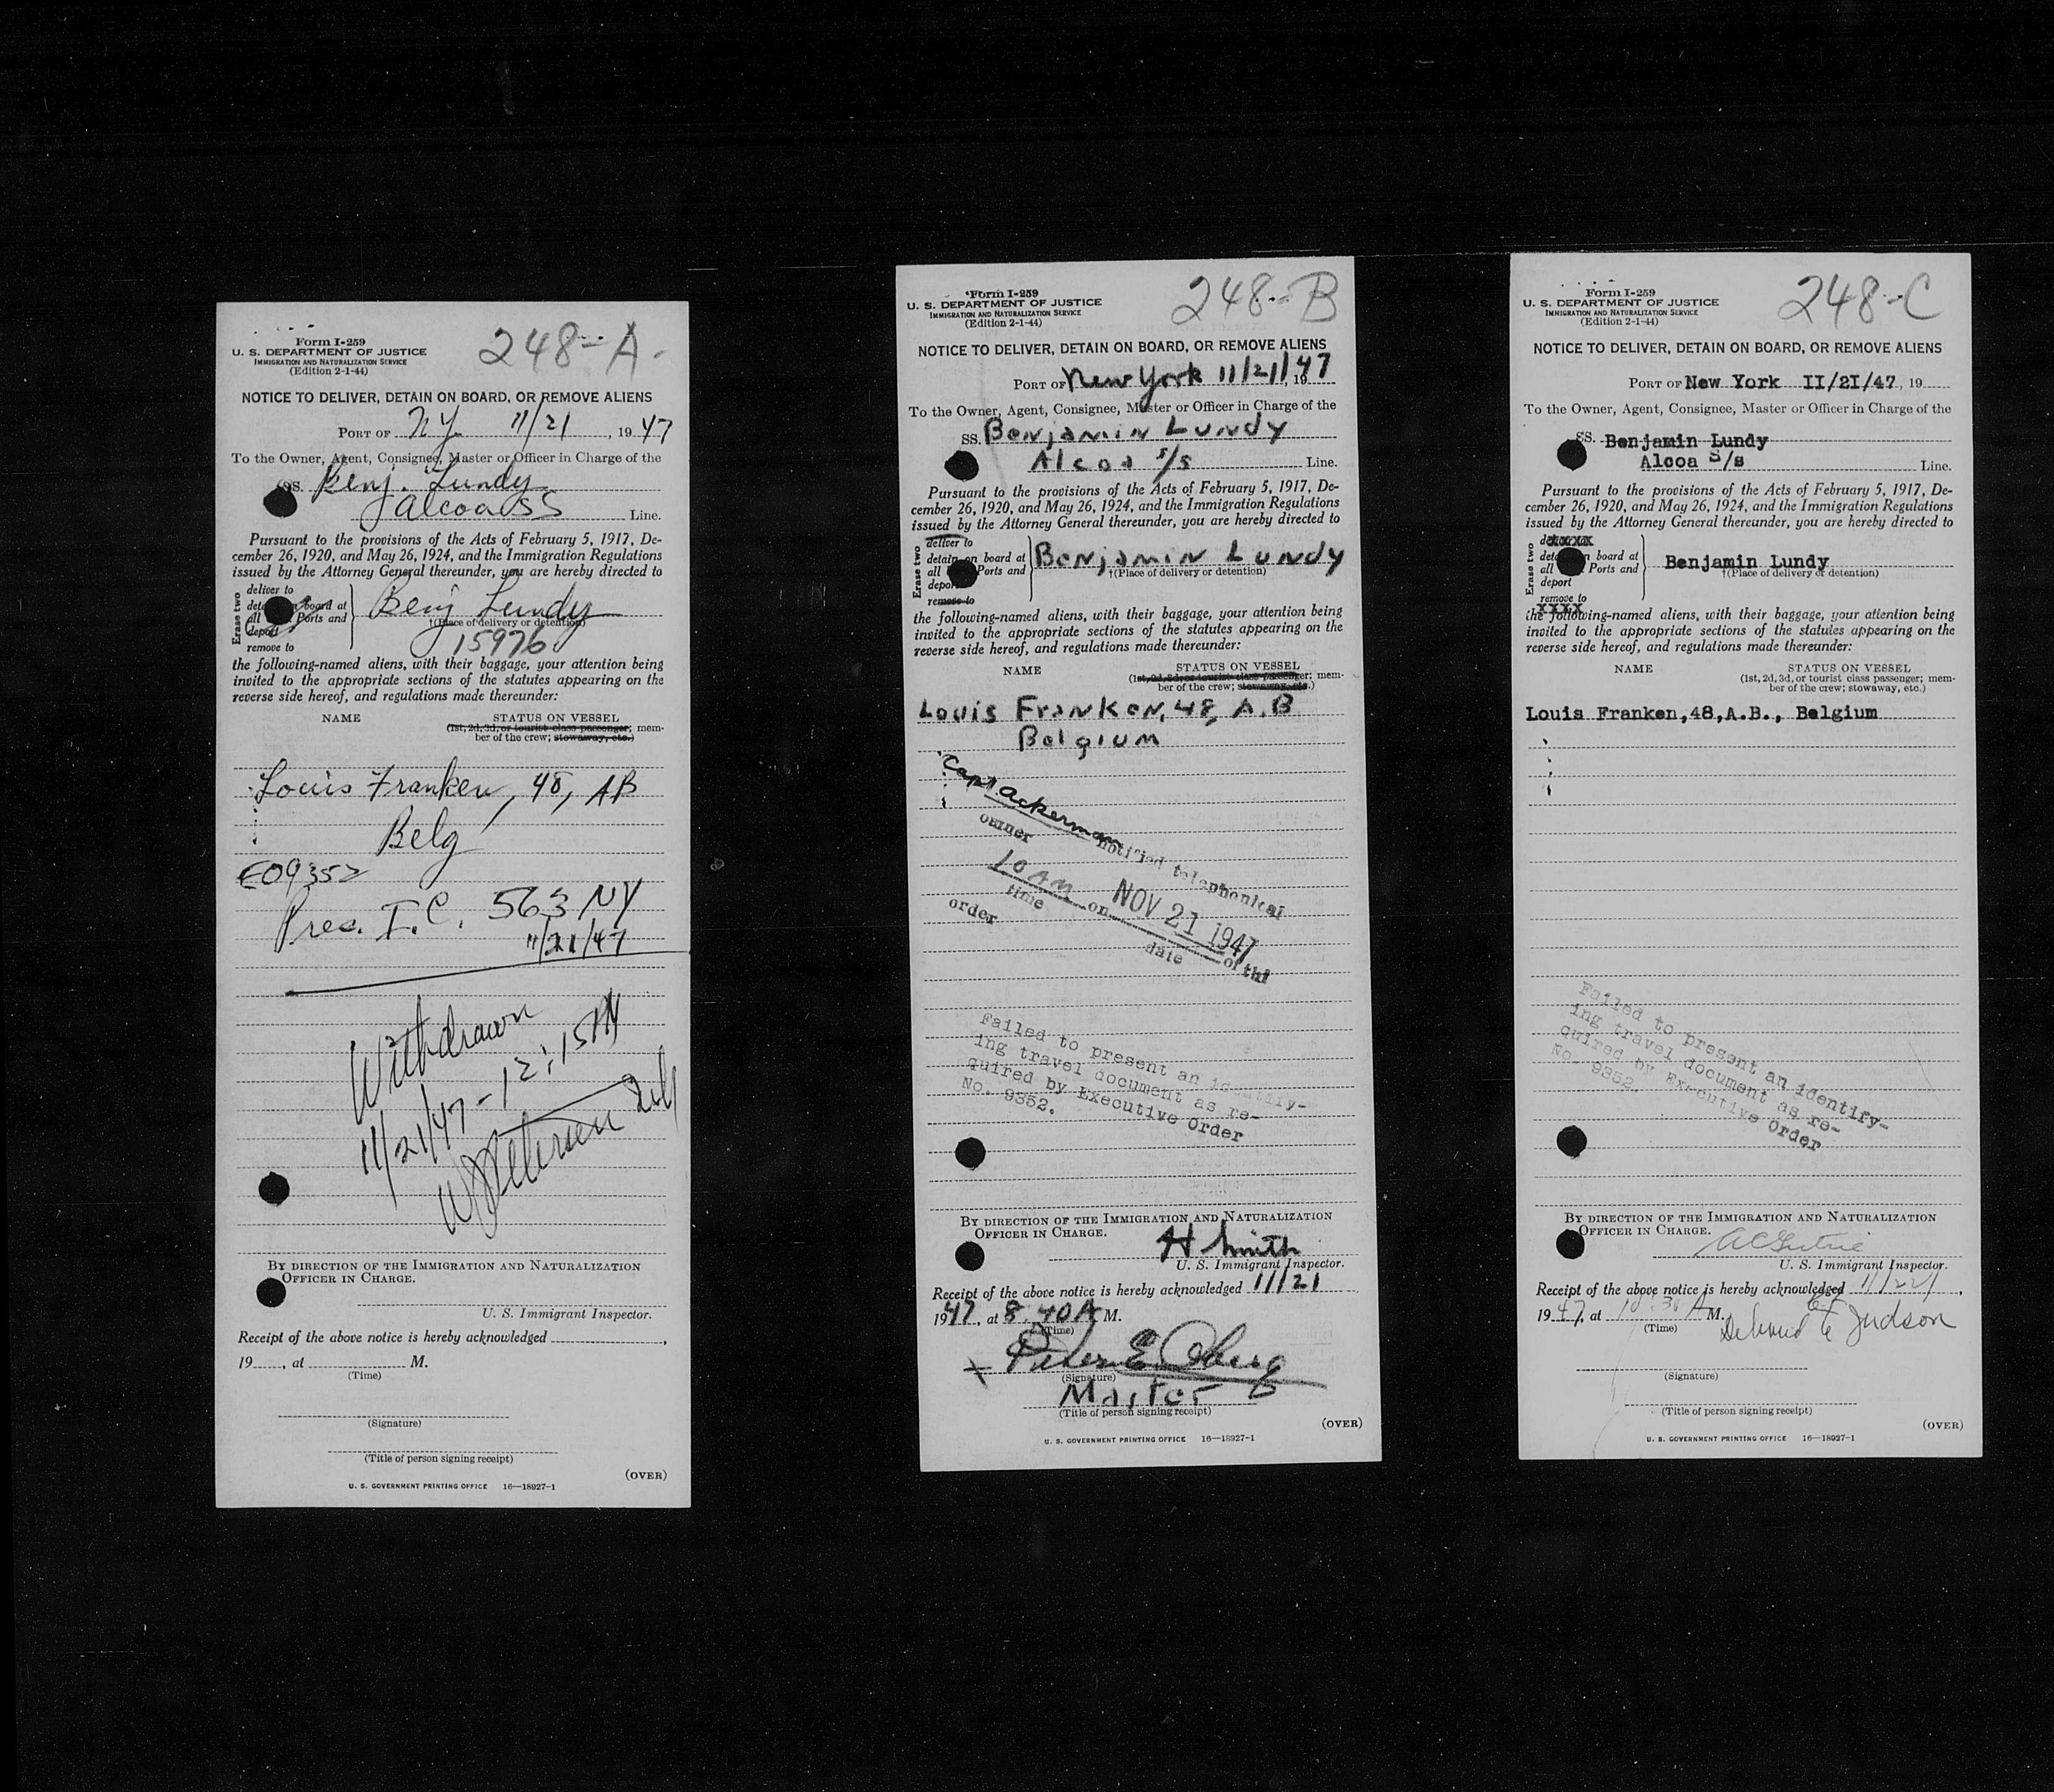 248-A-
Form I-259
U. S. DEPARTMENT OF JUSTICE
IMMIGRATION AND NATURALIZATION SERVICE
(Edition 2-1-44)
NOTICE TO DELIVER, DETAIN ON BOARD, OR REMOVE ALIENS
PORT OF NY 11/21, 1947
To the Owner, Agent, Consignee, Master or Officer in Charge of the
SS. Benj. Lundy
Alcoa SS Line.
Pursuant to the provisions of the Acts of February 5, 1917, De-
cember 26, 1920, and May 26, 1924, and the Immigration Regulations
issued by the Attorney General thereunder, you are hereby directed to
Erase two
deliver to
board at
all Ports and
deport
remove to
Benj Lundy
†(Place of delivery or detention)
15976
the following-named aliens, with their baggage, your attention being
invited to the appropriate sections of the statutes appearing on the
reverse side hereof, and regulations made thereunder:
NAME STATUS ON VESSEL
(1st, 2d, 3d, or tourist class passenger; mem-
ber of the crew; stowaway, etc.)
Louis Franken, 48, AB
Belg
EO9352
Prec. I.C. 563 NY
11/21/47
Withdrawn
11/21/47 - 12:15 PM
BY DIRECTION OF THE IMMIGRATION AND NATURALIZATION
OFFICER IN CHARGE.
U. S. Immigrant Inspector.
Receipt of the above notice is hereby acknowledged ,
19 , at M.
(Time)
(Signature)
(Title of person signing receipt)
(OVER)
U. S. GOVERNMENT PRINTING OFFICE 16—18927-1
248-B
Form I-259
U. S. DEPARTMENT OF JUSTICE
IMMIGRATION AND NATURALIZATION SERVICE
(Edition 2-1-44)
NOTICE TO DELIVER, DETAIN ON BOARD, OR REMOVE ALIENS
PORT OF New York 11/21/47, 19
To the Owner, Agent, Consignee, Master or Officer in Charge of the
SS. Benjamin Lundy
Alcoa S/S Line.
Pursuant to the provisions of the Acts of February 5, 1917, De-
cember 26, 1920, and May 26, 1924, and the Immigration Regulations
issued by the Attorney General thereunder, you are hereby directed to
Erase two
deliver to
detain on board at
all Ports and
deport
remove to
Benjamin Lundy
†(Place of delivery or detention)
the following-named aliens, with their baggage, your attention being
invited to the appropriate sections of the statutes appearing on the
reverse side hereof, and regulations made thereunder:
NAME STATUS ON VESSEL
(1st, 2d, 3d, or tourist class passenger; mem-
ber of the crew; stowaway, etc.)
Louis Franken, 48, A.B
Belgium
Capt Ackerman
owner notified telephonical
10 AM on NOV 21 1947 of thi
time date
order
Failed to present an identify-
ing travel document as re-
quired by Executive Order
No. 9352.
BY DIRECTION OF THE IMMIGRATION AND NATURALIZATION
OFFICER IN CHARGE.
H Smith
U. S. Immigrant Inspector.
Receipt of the above notice is hereby acknowledged 11/21,
1947, at 8.40 A M.
(Time)
(Signature)
Master
(Title of person signing receipt)
(OVER)
U. S. GOVERNMENT PRINTING OFFICE 16—18927-1
248-C
Form I-259
U. S. DEPARTMENT OF JUSTICE
IMMIGRATION AND NATURALIZATION SERVICE
(Edition 2-1-44)
NOTICE TO DELIVER, DETAIN ON BOARD, OR REMOVE ALIENS
PORT OF New York II/2I/47, 19
To the Owner, Agent, Consignee, Master or Officer in Charge of the
SS. Benjamin Lundy
Alcoa S/s Line.
Pursuant to the provisions of the Acts of February 5, 1917, De-
cember 26, 1920, and May 26, 1924, and the Immigration Regulations
issued by the Attorney General thereunder, you are hereby directed to
Erase two
board at
all Ports and
deport
remove to
xxxx
Benjamin Lundy
†(Place of delivery or detention)
the following-named aliens, with their baggage, your attention being
invited to the appropriate sections of the statutes appearing on the
reverse side hereof, and regulations made thereunder:
NAME STATUS ON VESSEL
(1st, 2d, 3d, or tourist class passenger; mem-
ber of the crew; stowaway, etc.)
Louis Franken,48,A.B., Belgium
Failed to present an identify-
ing travel document as re-
quired by Executive Order
No. 9352.
BY DIRECTION OF THE IMMIGRATION AND NATURALIZATION
OFFICER IN CHARGE.
U. S. Immigrant Inspector.
Receipt of the above notice is hereby acknowledged ,
1947, at M.
(Time)
Judson
(Signature)
(Title of person signing receipt)
(OVER)
U. S. GOVERNMENT PRINTING OFFICE 16—18927-1